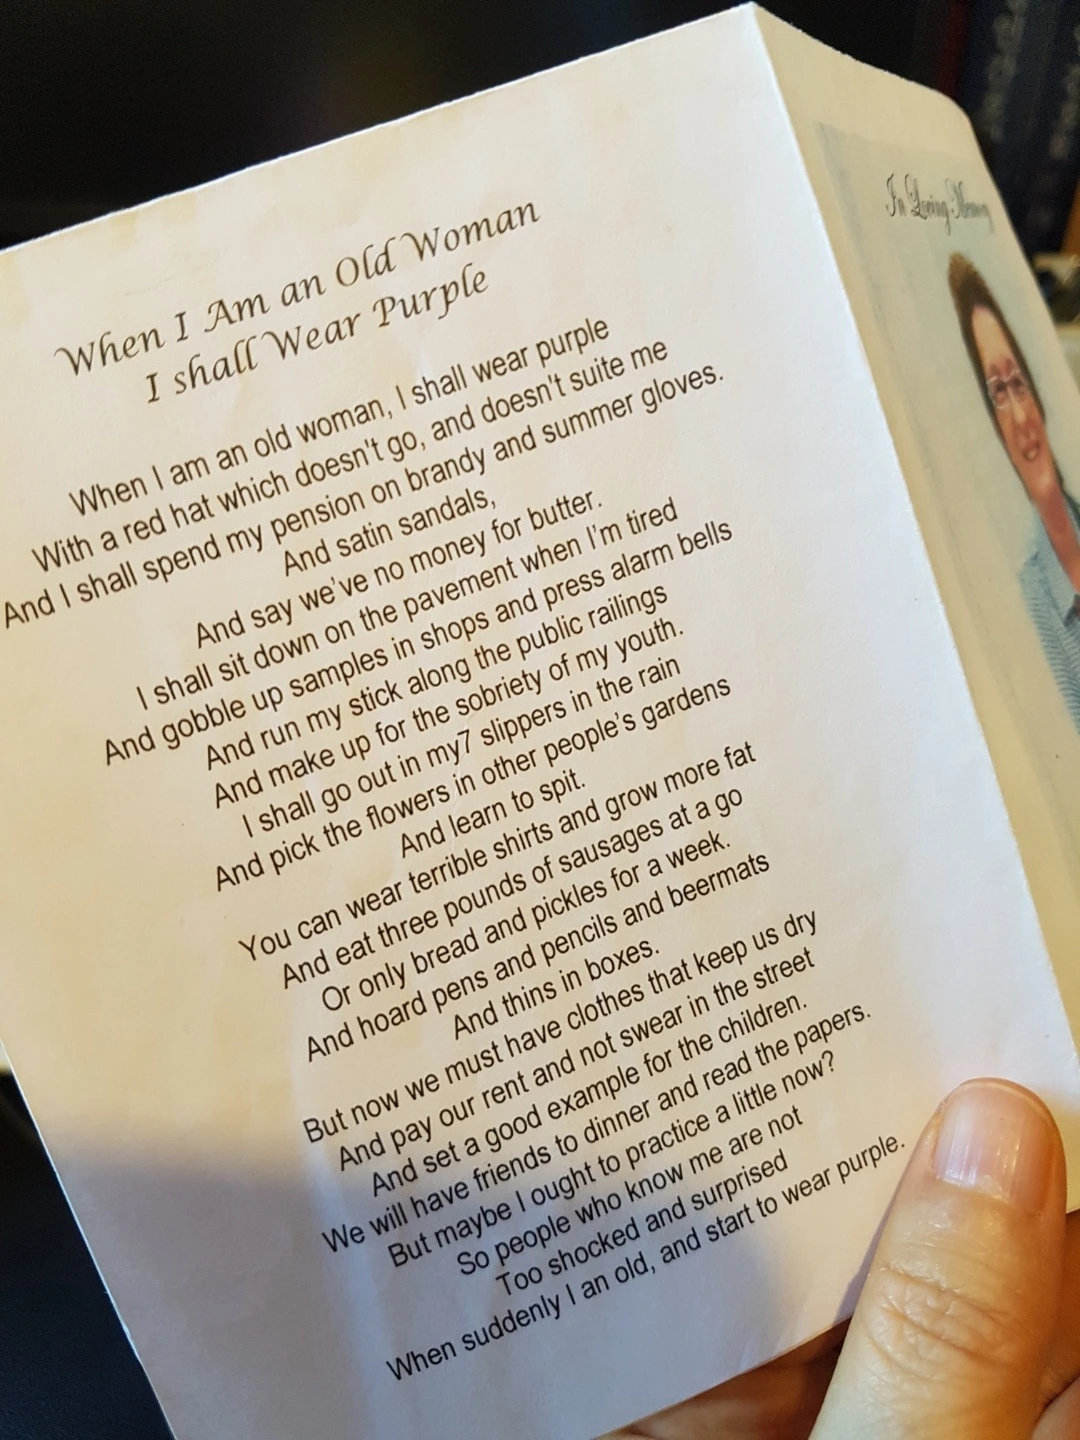 When I Am an Old Woman
I shall Wear Purple
When I am an old woman, I shall wear purple
With a red hat which doesn't go, and doesn't suite me
And I shall spend my pension on brandy and summer gloves.
And satin sandals,
And say we've no money for butter.
I shall sit down on the pavement when I'm tired
And gobble up samples in shops and press alarm bells
And run my stick along the public railings
And make up for the sobriety of my youth.
I shall go out in my7 slippers in the rain
And pick the flowers in other people's gardens
And learn to spit.
You can wear terrible shirts and grow more fat
And eat three pounds of sausages at a go
Or only bread and pickles for a week.
And hoard pens and pencils and beermats
And thins in boxes.
But now we must have clothes that keep us dry
And pay our rent and not swear in the street
And set a good example for the children.
We will have friends to dinner and read the papers.
But maybe I ought to practice a little now?
So people who know me are not
Too shocked and surprised
When suddenly I an old, and start to wear purple.
In Loving Memory